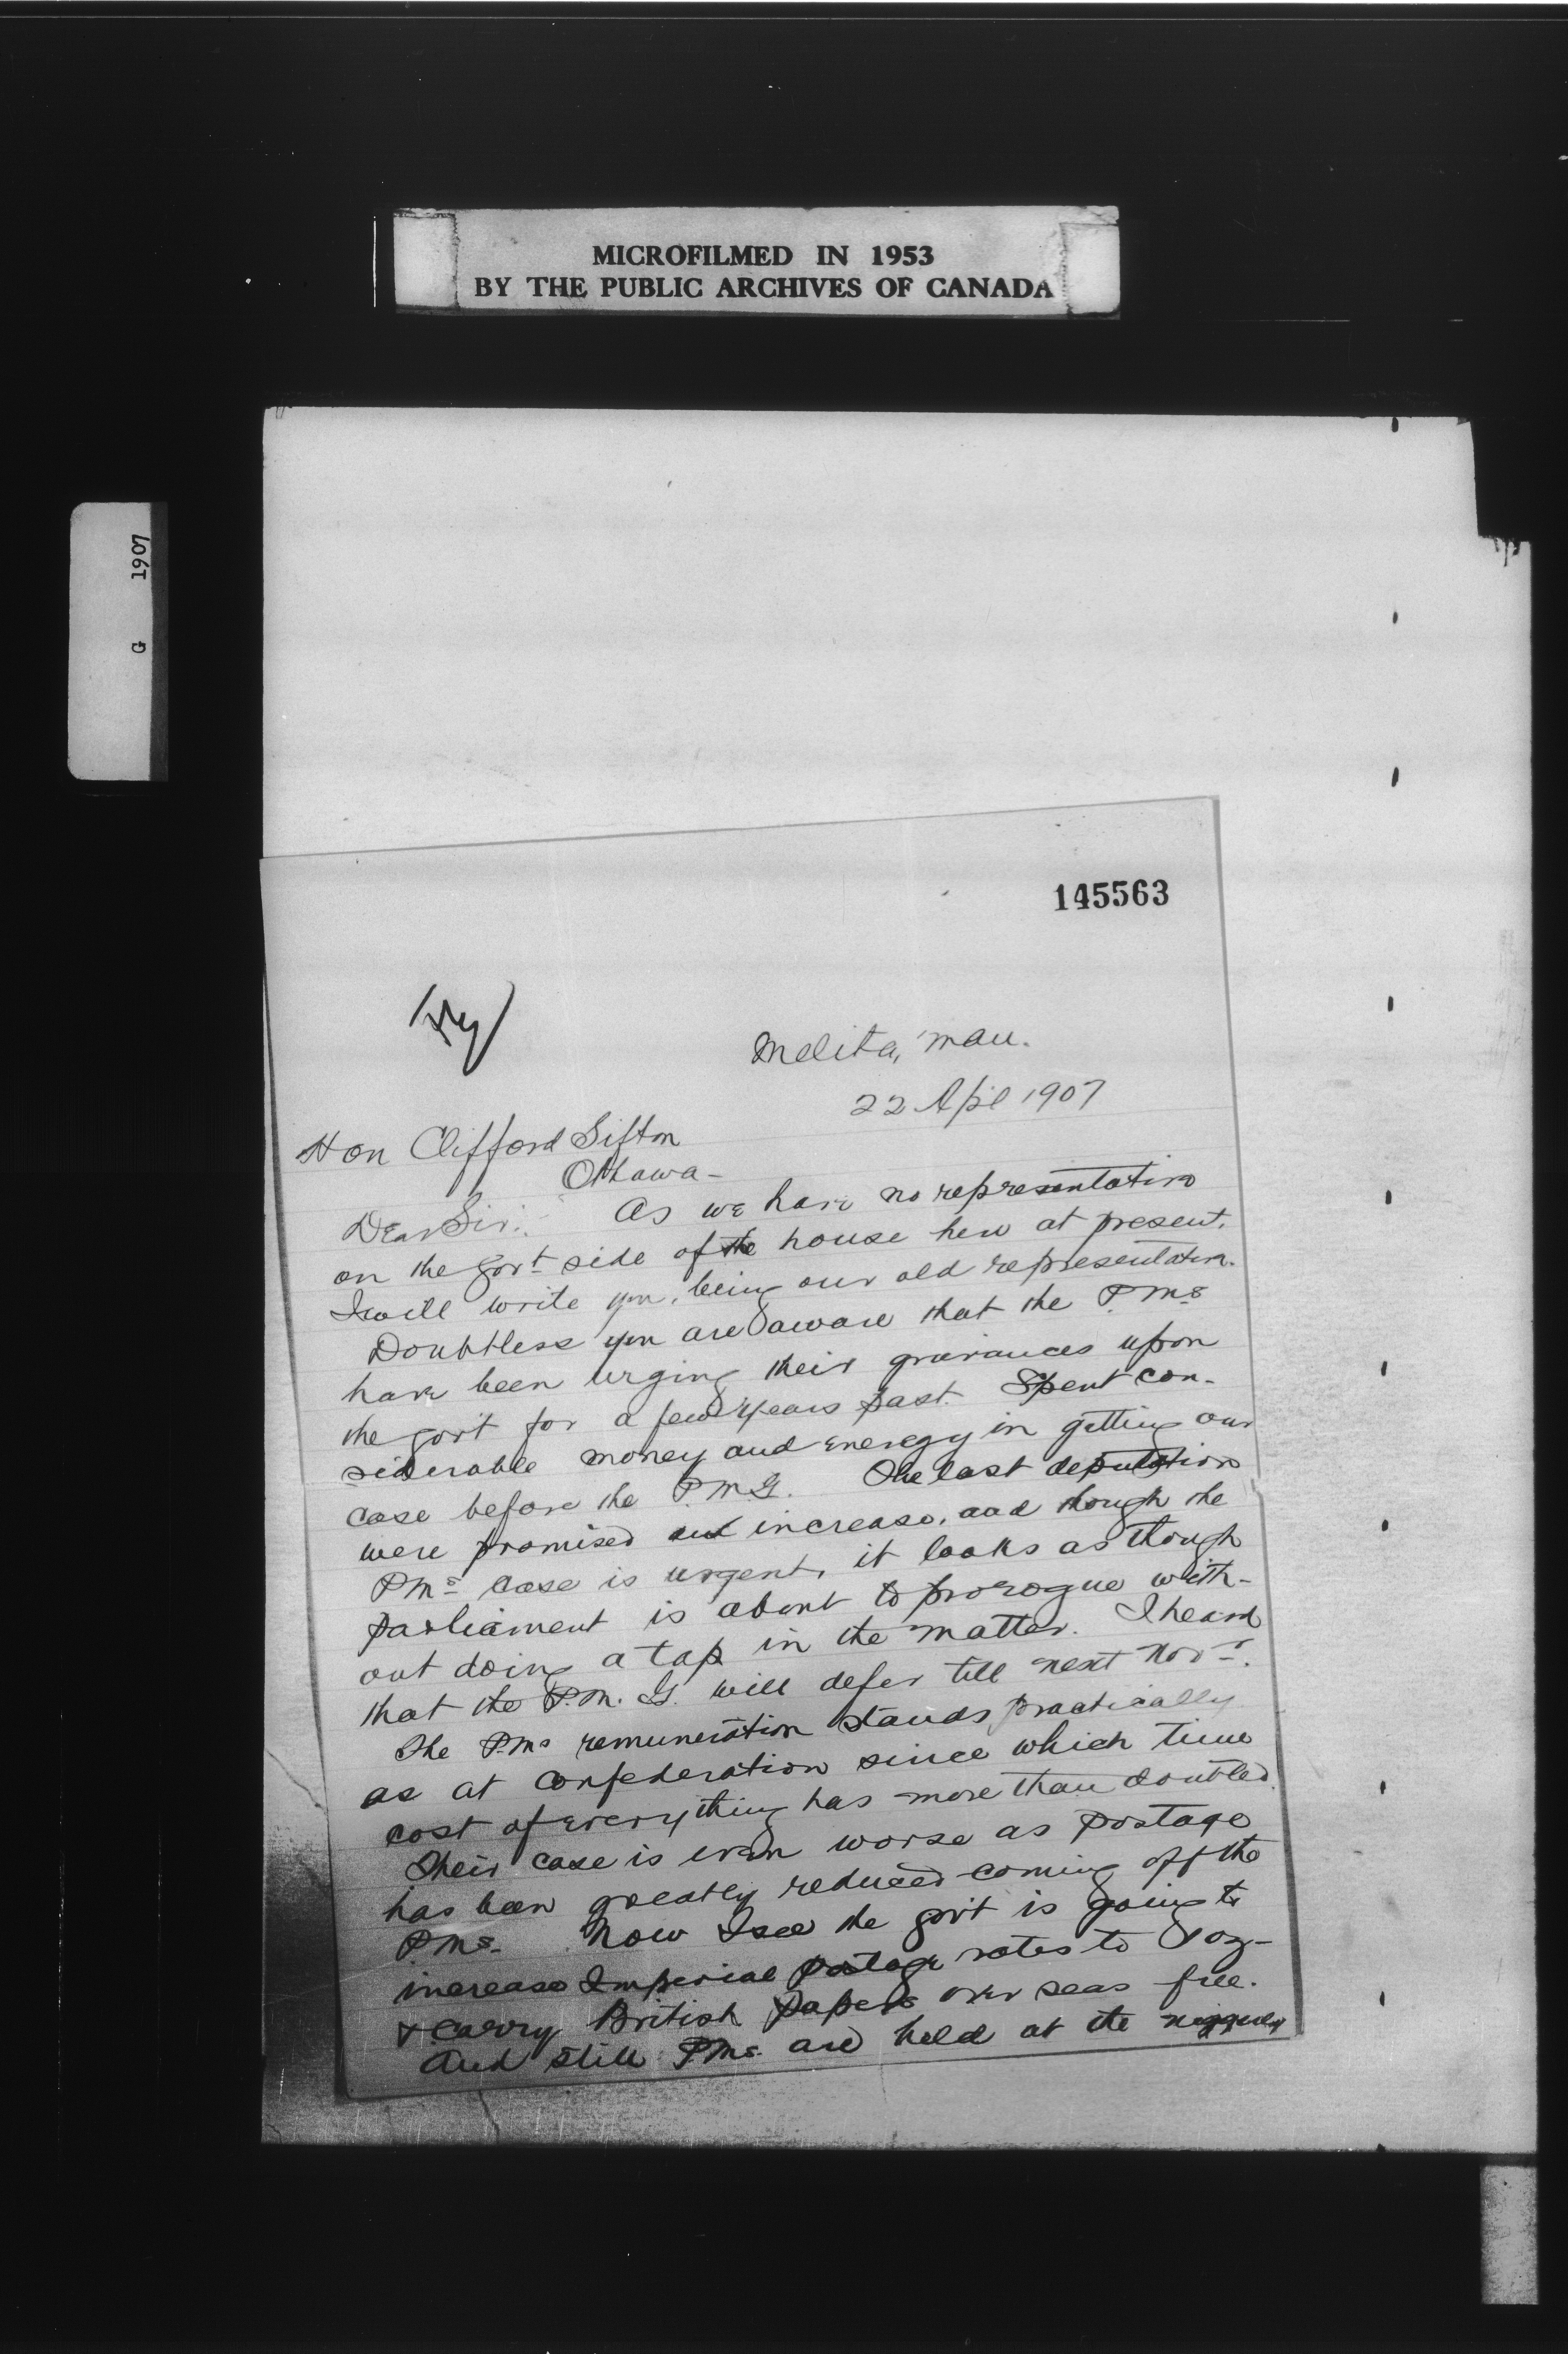 MICROFILMED IN 1953
BY THE PUBLIC ARCHIVES OF CANADA
G 1907
145563
Melita, Man.
22 Apl 1907
Hon Clifford Sifton
Ottawa -
Dear Sir: As we have no representative
on the Govt side of the house here at present.
I will write you, being our old representative.
Doubtless you are aware that the P.Ms
have been urging their grievances upon
the govt for a few years past. Spent con-
siderable money and energy in getting our
case before the P.M.G. The last deputation
were promised an increase, and though the
PMs case is urgent, it looks as though
parliament is about to prorogue with-
out doing a tap in the matter. I heard
that the P.M.G. will defer till next Novr.
The P.Ms remuneration stands practically
as at confederation since which time
cost of everything has more than doubled.
Their case is even worse as postage
has been greatly reduced coming off the
PMs. Now I see the govt is going to
increase Imperial postage rates to 1 oz -
& carry British papers over seas free.
And still PMs are held at the niggardly